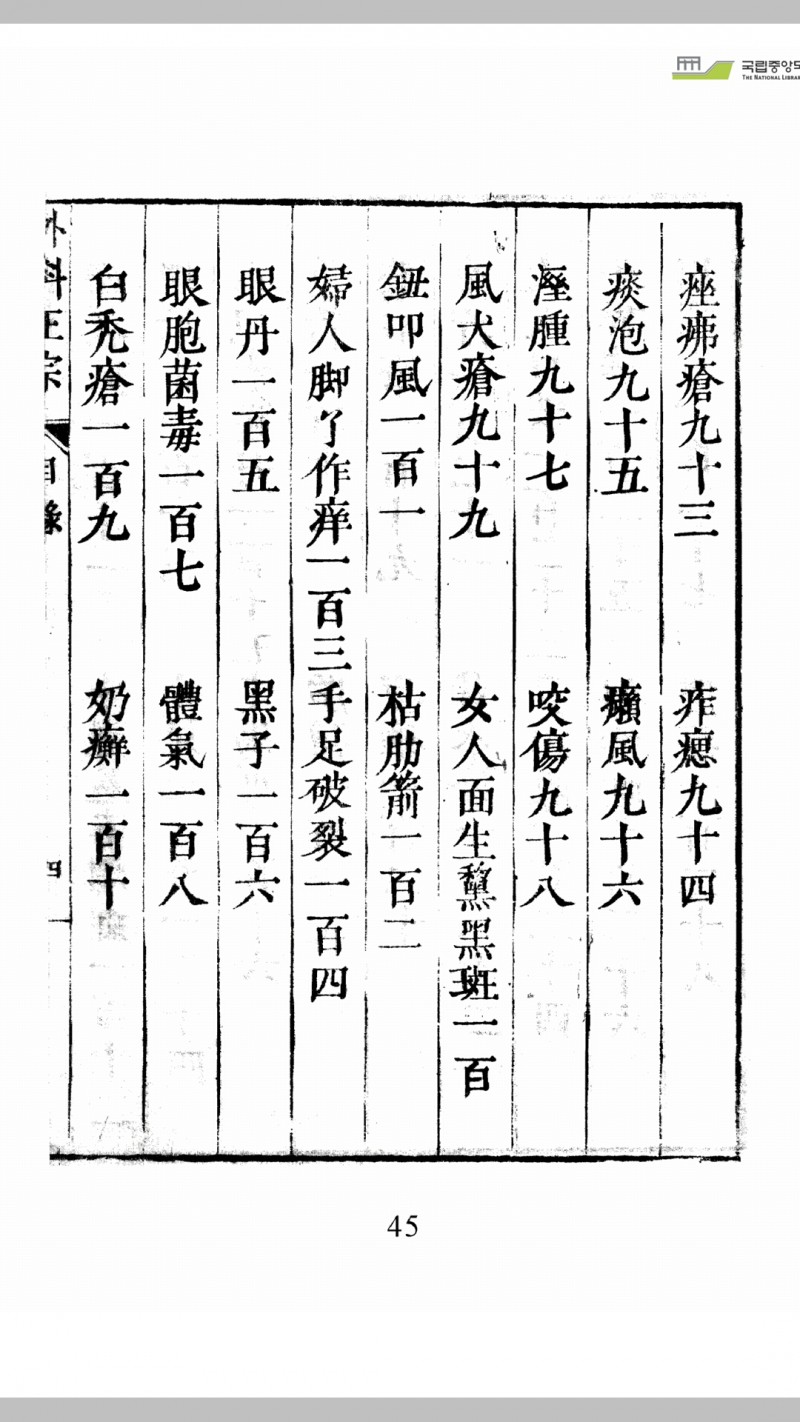 국립중앙도
THE NATIONAL LIBRAR
痤疿瘡九十三 痄腮九十四
痰泡九十五 癩風九十六
溼腫九十七 咬傷九十八
風犬瘡九十九 女人面生黧黑斑一百
鈕叩風一百一 枯肋箭一百二
婦人脚了作痒一百三手足破裂一百四
眼丹一百五 黑子一百六
眼胞菌毒一百七 體氣一百八
白禿瘡一百九 奶癬一百十
外科正宗 目錄 四
45